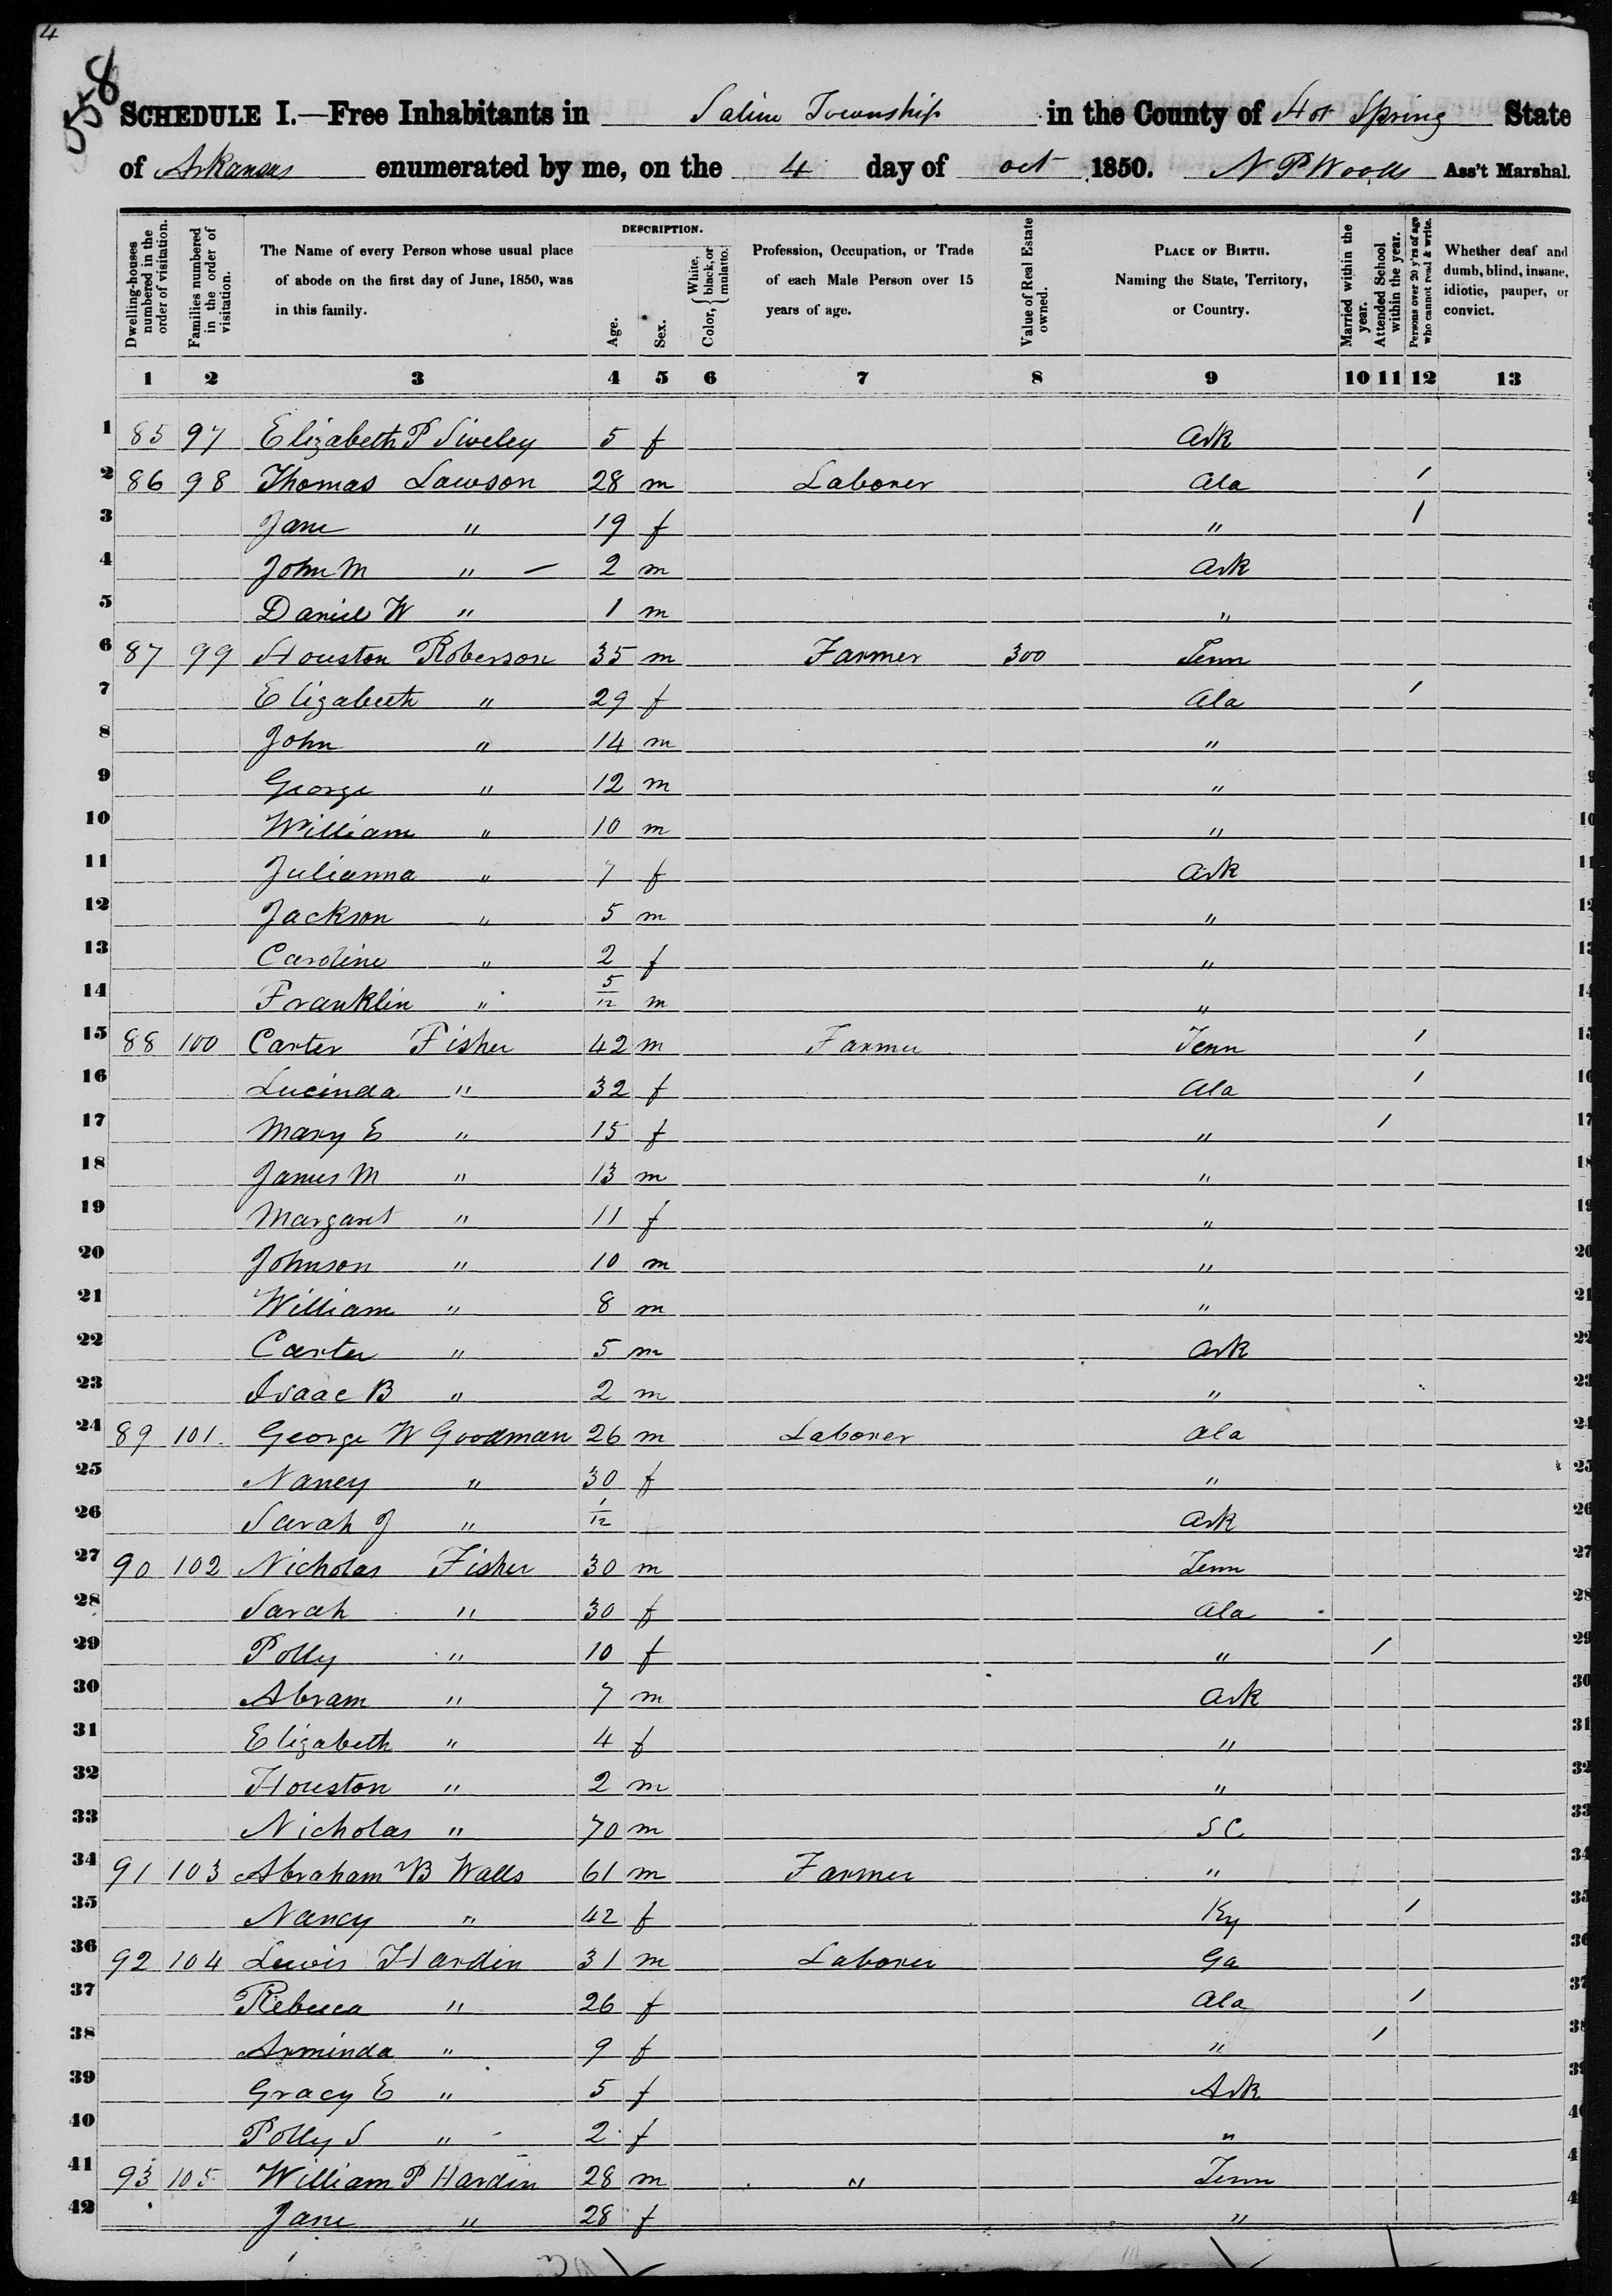 4
558
SCHEDULE I.—Free Inhabitants in Saline Township in the County of Hot Spring State
of Arkansas enumerated by me, on the 4 day of oct 1850. N P Woolls Ass't Marshal.
Dwelling-houses numbered in the order of visitation.
Families numbered in the order of visitation.
The Name of every Person whose usual place of abode on the first day of June, 1850, was in this family.
DESCRIPTION.
Age.
Sex.
Color, { White, black, or mulatto.
Profession, Occupation, or Trade of each Male Person over 15 years of age.
Value of Real Estate owned.
PLACE OF BIRTH. Naming the State, Territory, or Country.
Married within the year.
Attended School within the year.
Persons over 20 y'rs of age who cannot read & write.
Whether deaf and dumb, blind, insane, idiotic, pauper, or convict.
1 2 3 4 5 6 7 8 9 10 11 12 13
1 85 97 Elizabeth P Siveley 5 f Ark
2 86 98 Thomas Lawson 28 m Laborer Ala 1
3 Jane " 19 f " 1
4 John M " — 2 m Ark
5 Daniel W " 1 m "
6 87 99 Houston Roberson 35 m Farmer 300 Tenn
7 Elizabeth " 29 f Ala 1
8 John " 14 m "
9 George " 12 m "
10 William " 10 m "
11 Julianna " 7 f Ark
12 Jackson " 5 m "
13 Caroline " 2 f "
14 Franklin " 5/12 m "
15 88 100 Carter Fisher 42 m Farmer Tenn 1
16 Lucinda " 32 f Ala 1
17 Mary E " 15 f " 1
18 James M " 13 m "
19 Margaret " 11 f "
20 Johnson " 10 m "
21 William " 8 m "
22 Carter " 5 m Ark
23 Isaac B " 2 m "
24 89 101 George W Goodman 26 m Laborer Ala
25 Nancy " 30 f "
26 Sarah J " 1/12 Ark
27 90 102 Nicholas Fisher 30 m Tenn
28 Sarah " 30 f Ala
29 Polly " 10 f " 1
30 Abram " 7 m Ark
31 Elizabeth " 4 f "
32 Houston " 2 m "
33 Nicholas " 70 m S C
34 91 103 Abraham B Walls 61 m Farmer "
35 Nancy " 42 f Ky 1
36 92 104 Lewis Hardin 31 m Laborer Ga
37 Rebecca " 26 f Ala 1
38 Arminda " 9 f " 1
39 Gracy E " 5 f Ark
40 Polly S " 2 f "
41 93 105 William P Hardin 28 m " Tenn
42 Jane " 28 f "